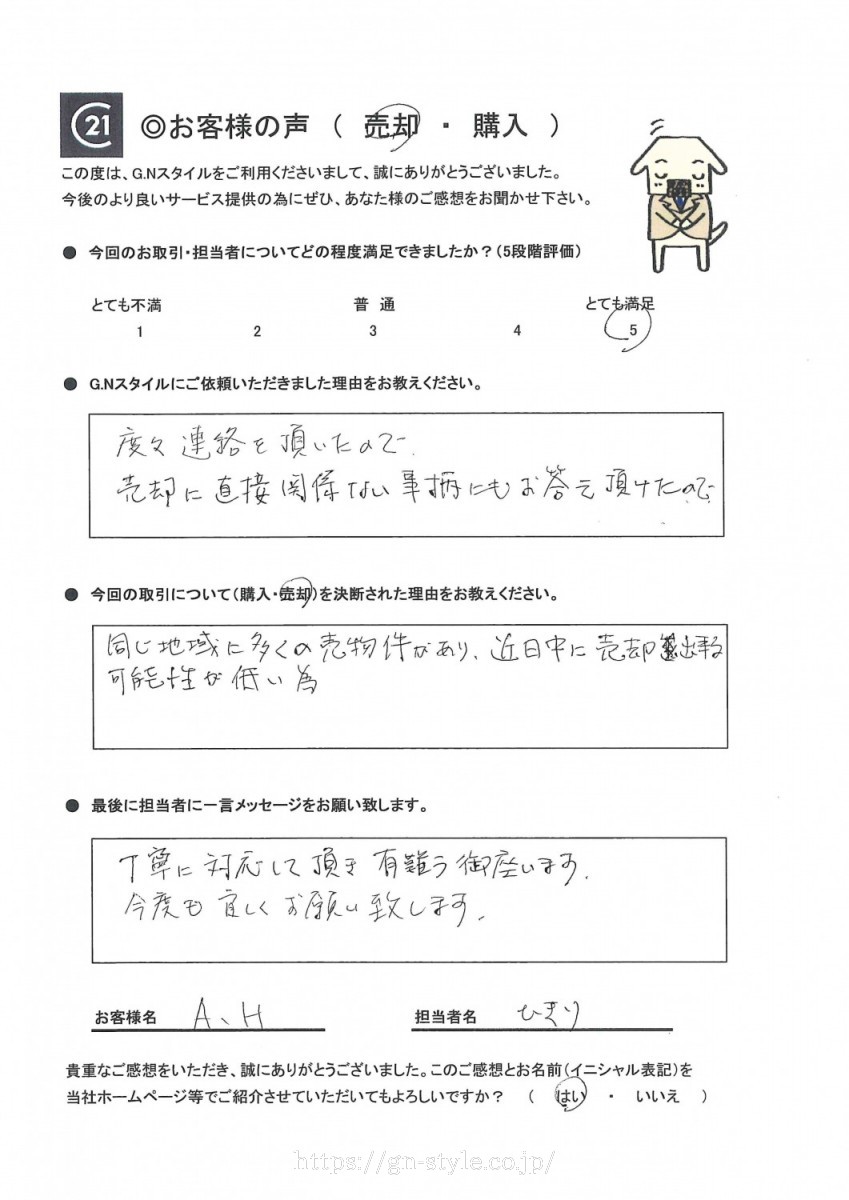 C21
◎お客様の声 （ 売却 ・ 購入 ）
この度は、G.Nスタイルをご利用くださいまして、誠にありがとうございました。
今後のより良いサービス提供の為にぜひ、あなた様のご感想をお聞かせ下さい。
● 今回のお取引・担当者についてどの程度満足できましたか？（5段階評価）
とても不満 普 通 とても満足
1 2 3 4 5
● G.Nスタイルにご依頼いただきました理由をお教えください。
度々連絡を頂いたので.
売却に直接関係ない事柄にもお答え頂けたので
● 今回の取引について（購入・売却）を決断された理由をお教えください。
同じ地域に多くの売物件があり、近日中に売却出来る
可能性が低い為
● 最後に担当者に一言メッセージをお願い致します。
丁寧に対応して頂き有難う御座います.
今度も宜しくお願い致します.
お客様名 A、H 担当者名 ひきり
貴重なご感想をいただき、誠にありがとうございました。このご感想とお名前（イニシャル表記）を
当社ホームページ等でご紹介させていただいてもよろしいですか？ （ はい ・ いいえ ）
https://gn-style.co.jp/